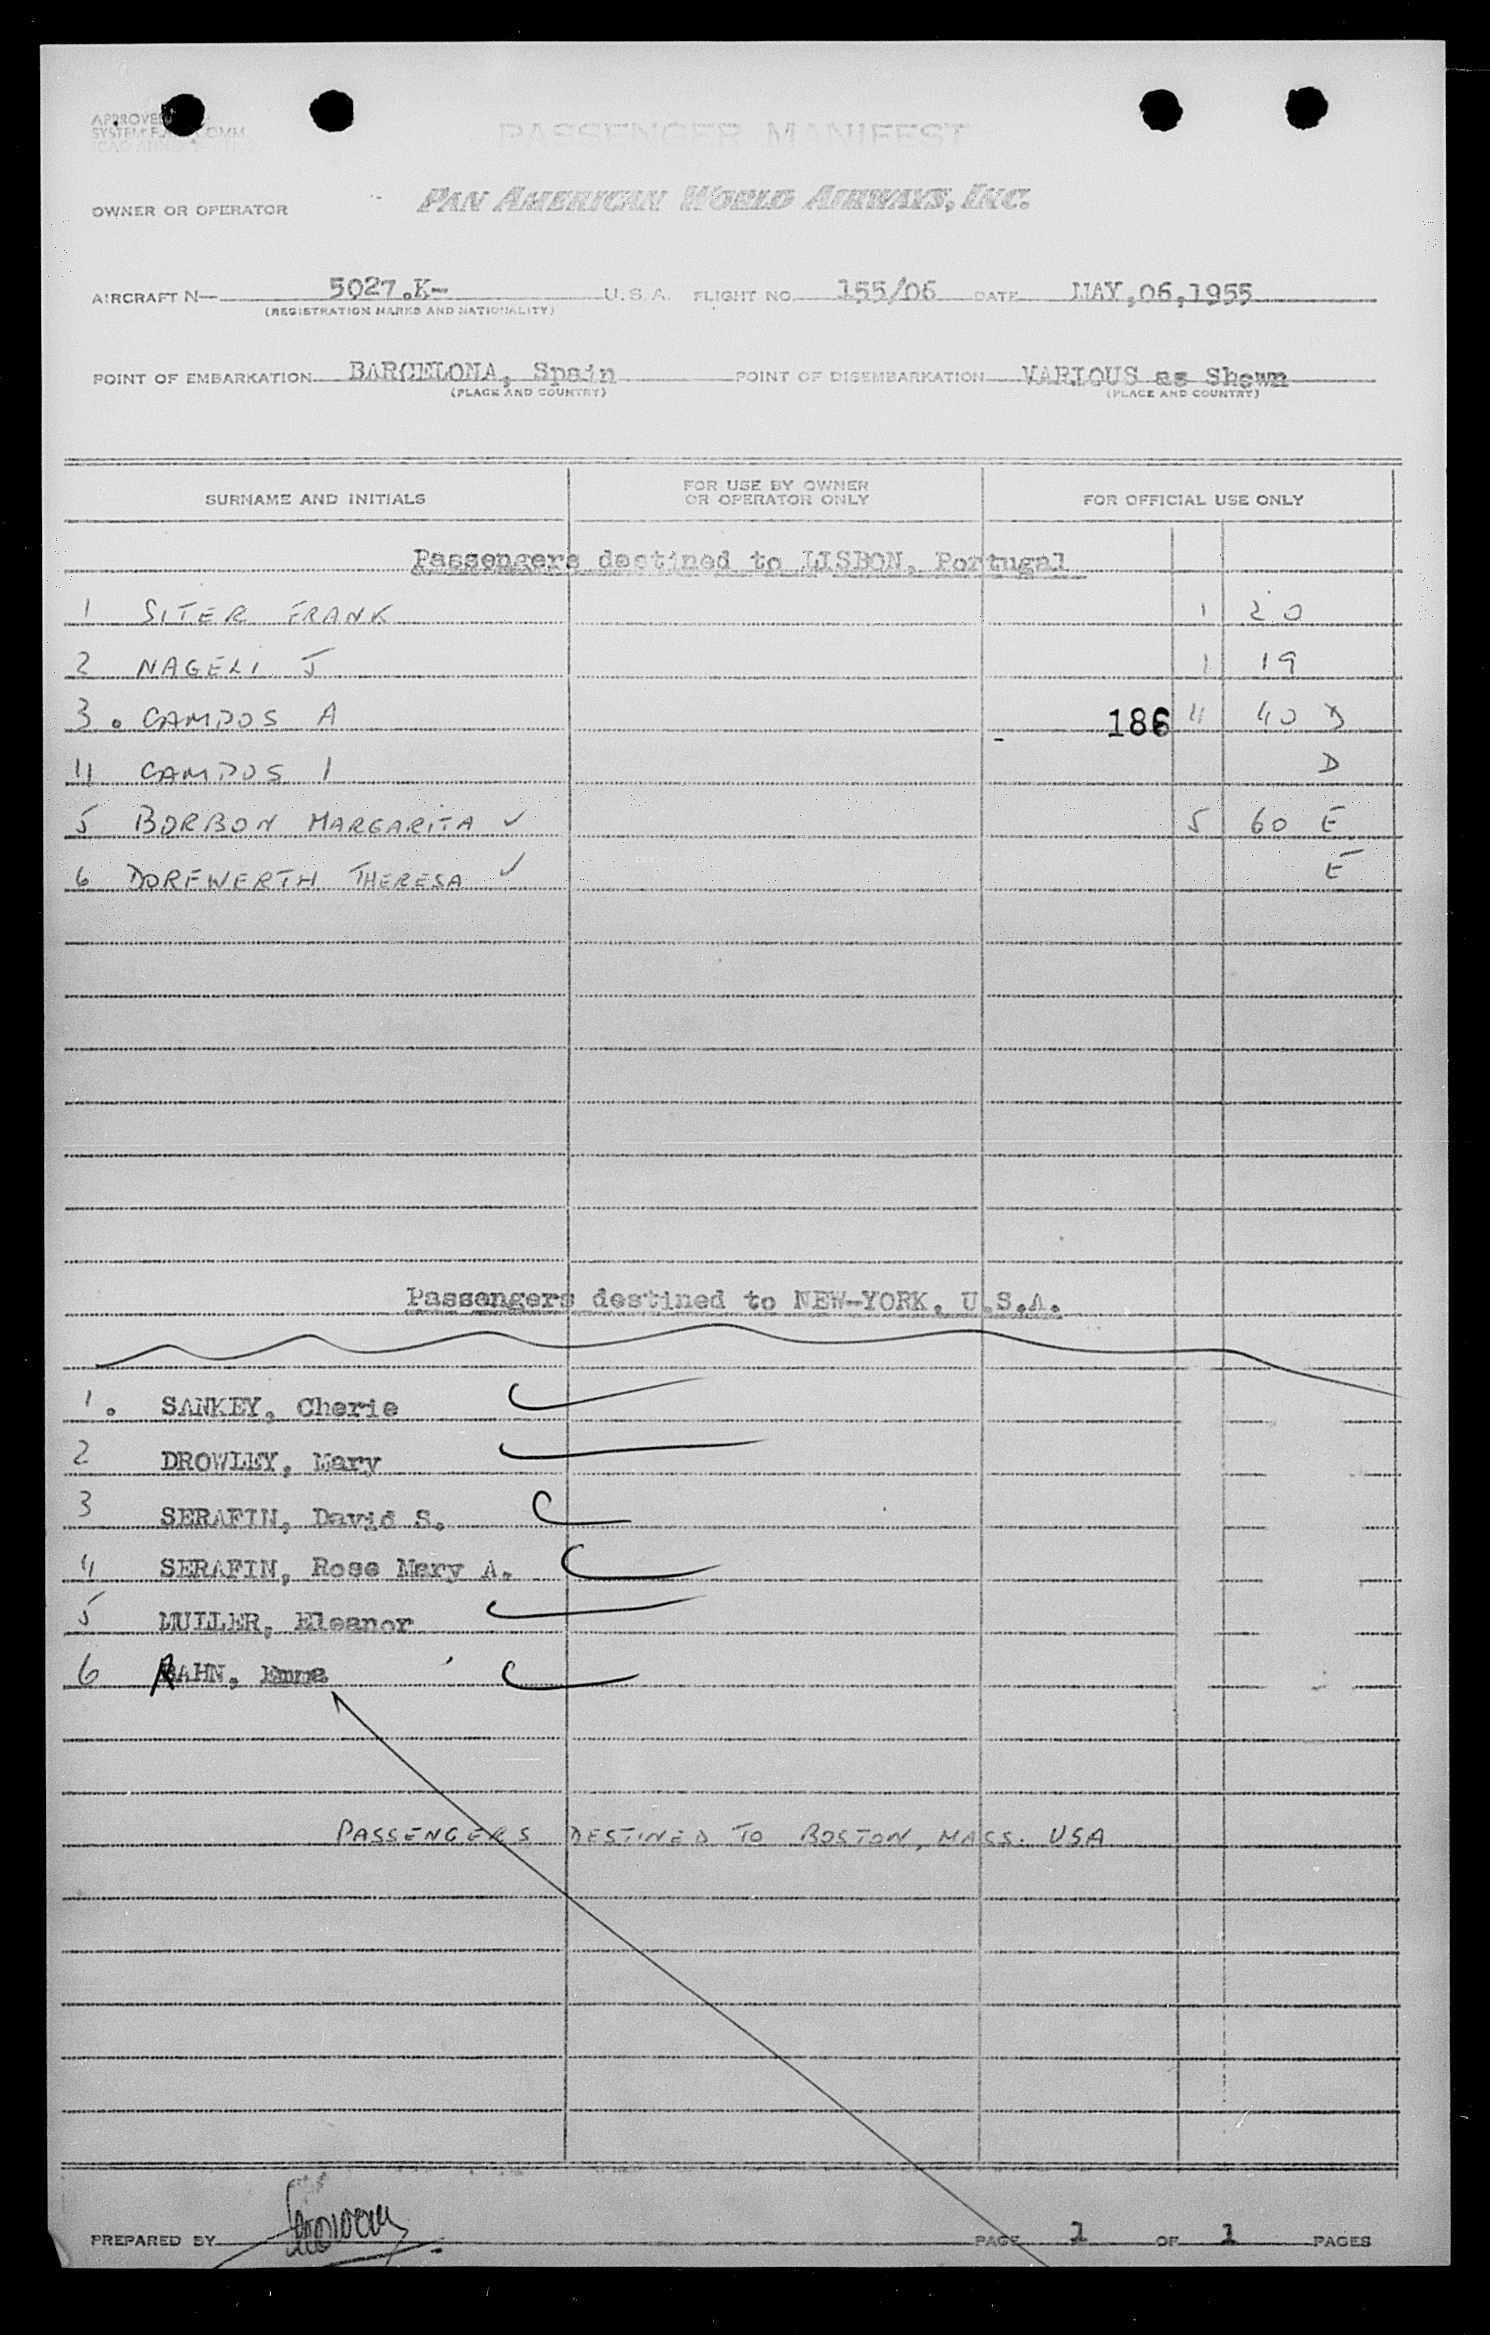 APPROVED
SYSTEM COMM
PASSENGER MANIFEST
OWNER OR OPERATOR PAN AMERICAN WORLD AIRWAYS, INC.
AIRCRAFT N— 5027.K- U.S.A. FLIGHT NO. 155/06 DATE MAY,06,1955
(REGISTRATION MARKS AND NATIONALITY)
POINT OF EMBARKATION BARCELONA, Spain POINT OF DISEMBARKATION VARIOUS as Shown
(PLACE AND COUNTRY) (PLACE AND COUNTRY)
SURNAME AND INITIALS FOR USE BY OWNER OR OPERATOR ONLY FOR OFFICIAL USE ONLY
Passengers destined to LISBON, Portugal
1 SITER FRANK 1 20
2 NAGELI J 1 19
3. CAMPOS A 186 4 40 D
4 CAMPOS I D
5 BORBON MARGARITA ✓ 5 60 E
6 DORFWERTH THERESA ✓ E
Passengers destined to NEW-YORK, U.S.A.
1. SANKEY, Cherie
2 DROWLEY, Mary
3 SERAFIN, David S.
4 SERAFIN, Rose Mary A.
5 MULLER, Eleanor
6 RAHN, Emma
PASSENGERS DESTINED TO BOSTON, MASS. USA
PREPARED BY PAGE 1 OF 1 PAGES